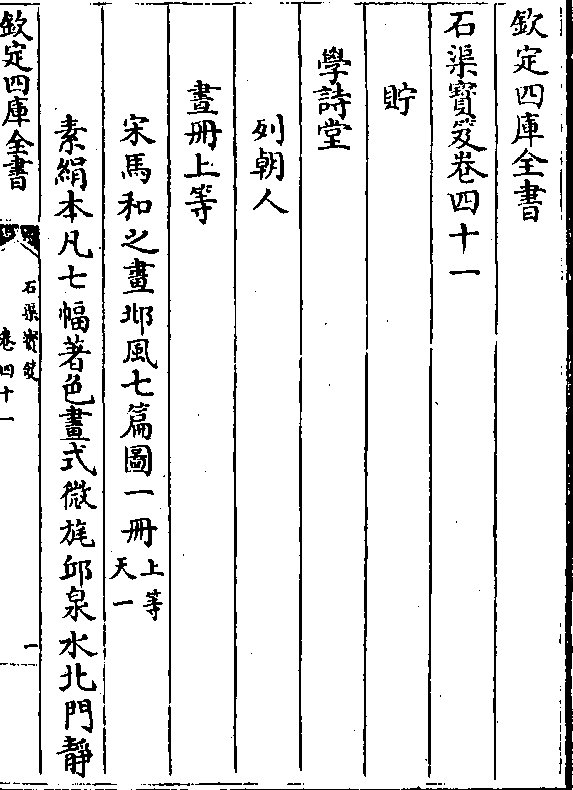 欽定四庫全書
石渠寳笈卷四十一
貯
學詩堂
列朝人
畫冊上等
宋馬和之畫邶風七篇圖一冊上等天一
素絹本凡七幅著色畫式微旄邱泉水北門靜
欽定四庫全書
石渠寳笈
卷四十一
一